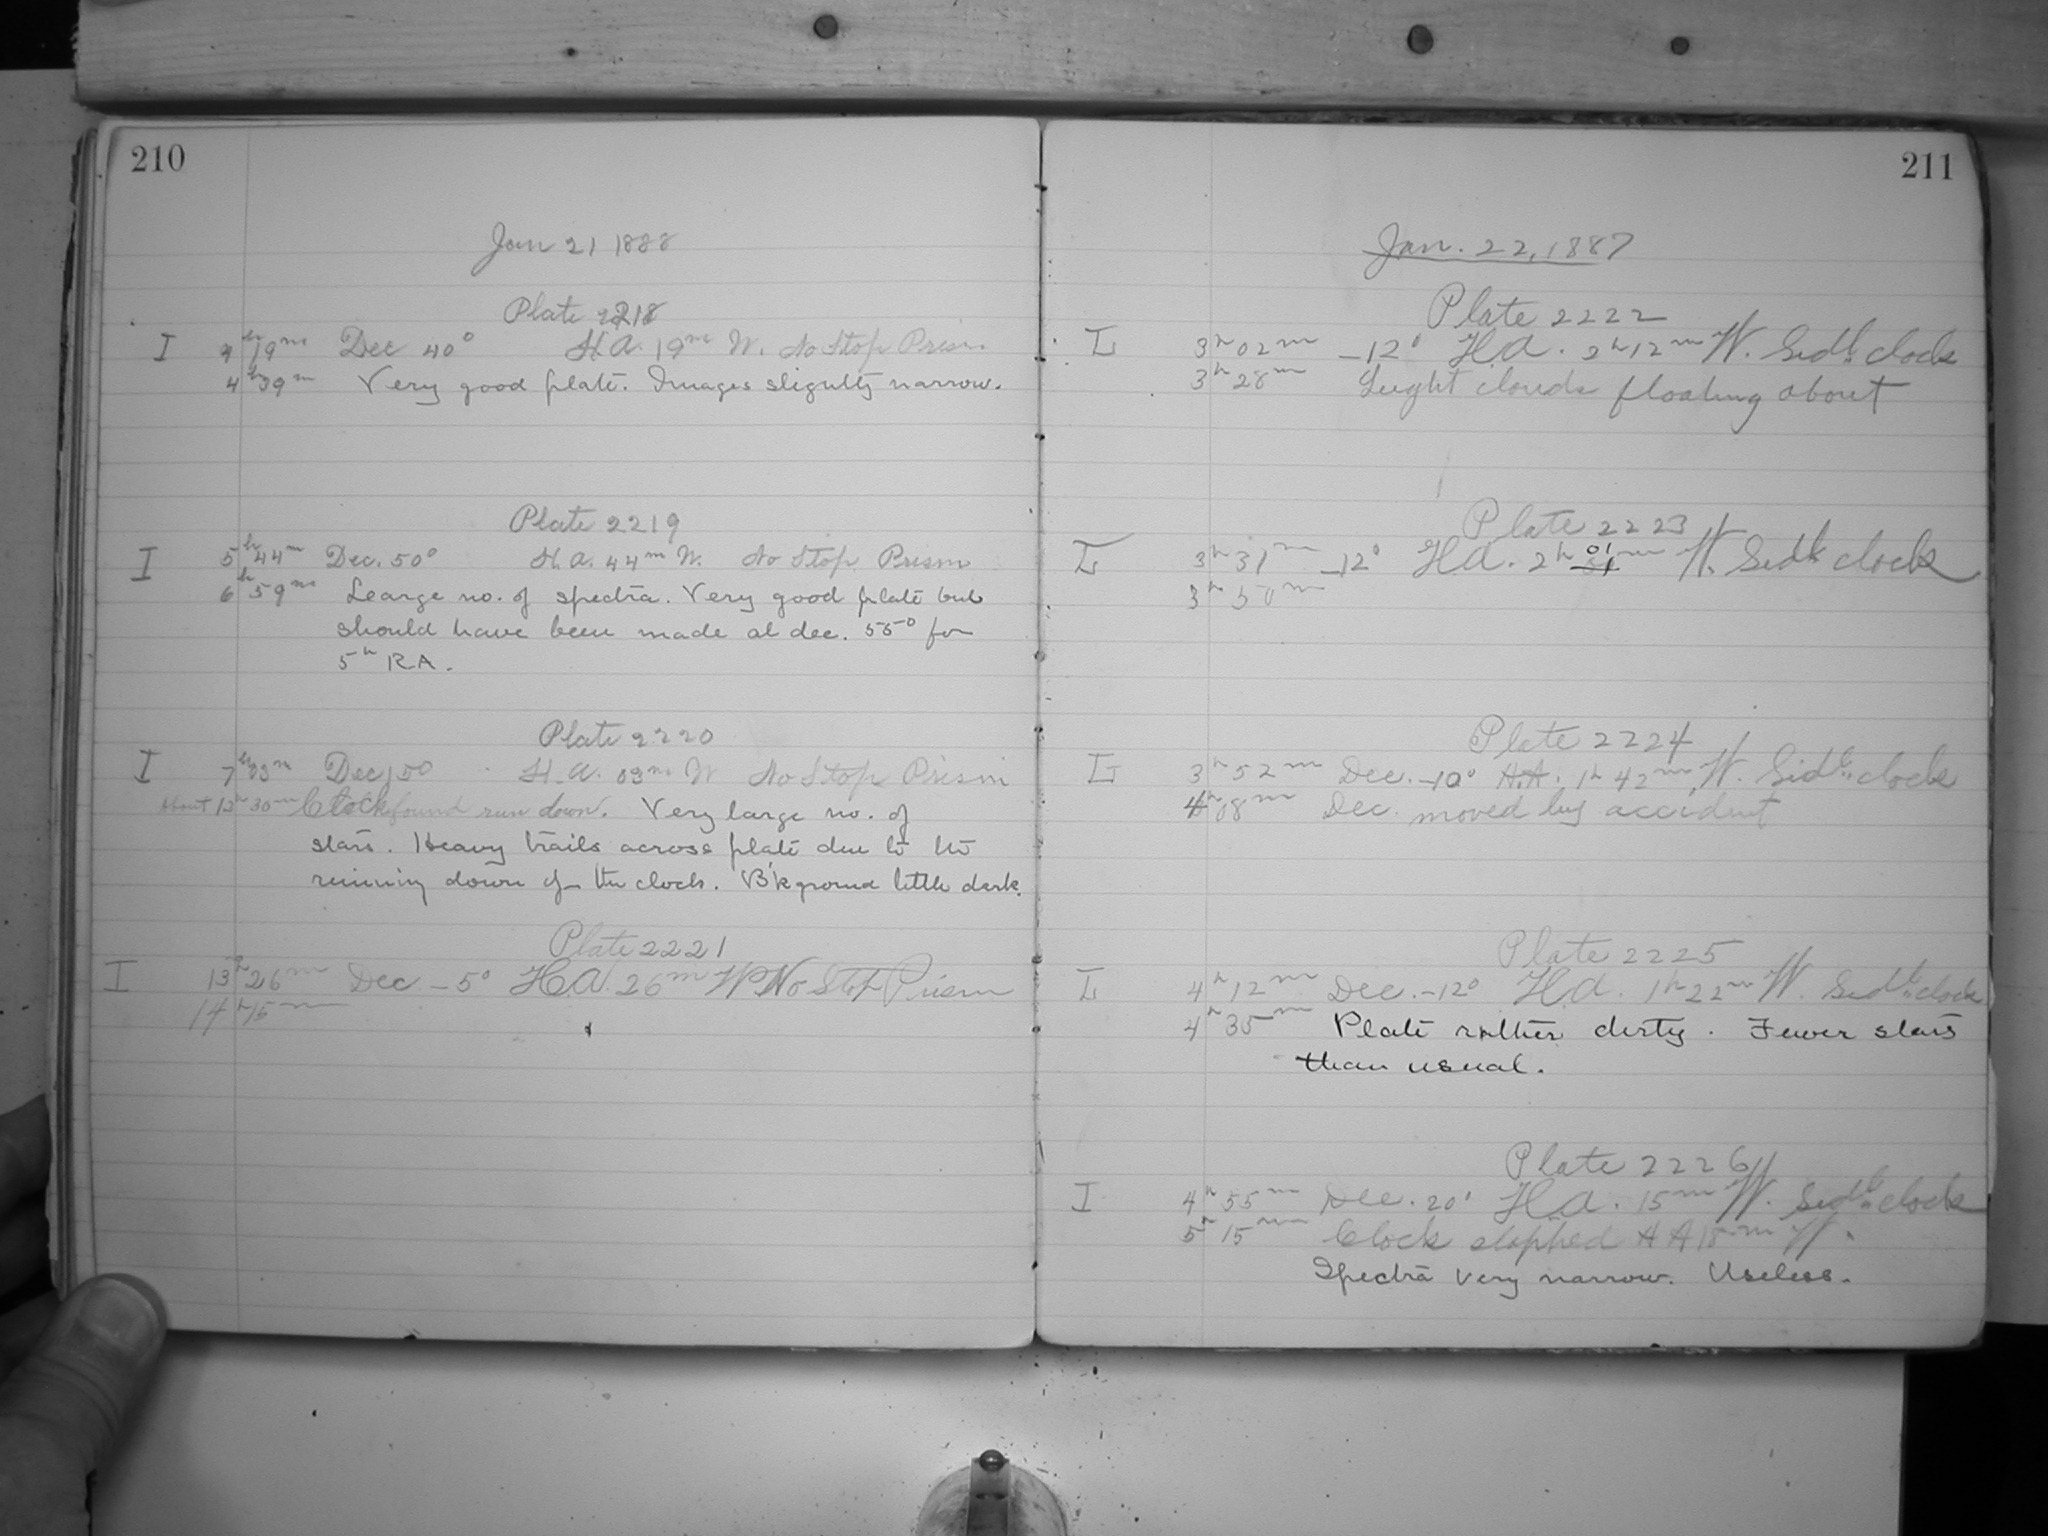 210
Jan 21 1888
Plate 2218
I 4h 19m Dec 40° H.A. 19m W. No Stop Prism
4h 39m Very good plate. Images slightly narrow.
Plate 2219
I 5h 44m Dec. 50° H.A. 44m W. No Stop Prism
6h 59m Learge no. of spectra. Very good plate but
should have been made at dec. 55° for
5h RA.
Plate 2220
I 7h 03m Dec 50 H.A. 03m W No Stop Prism
About 12h 30m Clock found run down. Very large no. of
stars. Heavy trails across plate due to the
running down of the clock. B'kground little dark.
Plate 2221
I 13h 26m Dec -5° H.A. 26m W No Stop Prism
14h 15m
211
Jan. 22, 1887
Plate 2222
I 3h 02m -12° H.A. 2h 12m W. Sidl. clock
3h 28m Light clouds floating about
Plate 2223
I 3h 31m -12° H.A. 2h 01m W. Sidl. clock
3h 50m
Plate 2224
I 3h 52m Dec. -10° H.A. 1h 42m W. Sidl. clock
4h 08m Dec. moved by accident
Plate 2225
I 4h 12m Dec. -12° H.A. 1h 22m W. Sidl. clock
4h 35m Plate rather dirty. Fewer stars
than usual.
Plate 2226
I 4h 55m Dec. 20° H.A. 15m W. Sidl. clock
5h 15m Clock stopped H A 15m W.
Spectra very narrow. Useless.